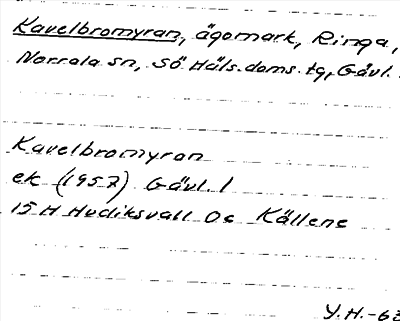 Kavelbromyran, ägomark, Ringa,
Norrala sn, Sö Häls. doms. tg, Gävl.
Kavelbromyran
ek (1957) Gävl. l
15 H Hudiksvall 0c Källene
Y.H.-63